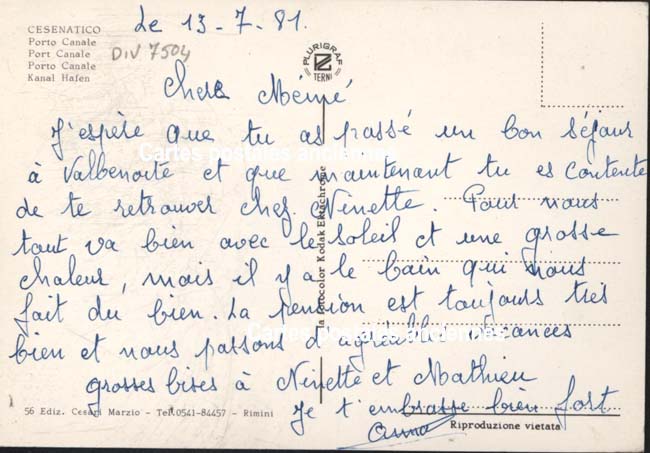 CESENATICO
Porto Canale
Port Canale
Porto Canale
Kanal Hafen
DIV 7504
Le 13-7-81.
PLURIGRAF
TERNI
Chère Memé
J'espère que tu as passé un bon séjour
à Valbenoite et que maintenant tu es contente
de te retrouver chez Ninette. Pour nous
tout va bien avec le soleil et une grosse
chaleur, mais il y a le bain qui nous
fait du bien. La pension est toujours très
bien et nous passons d'agréables vacances
grosses bises à Ninette et Mathieu
Je t'embrasse bien fort
Cartes postales anciennes
Cartes postales anciennes
Fotocolor Kodak Ektachrome
56 Ediz. Cesari Marzio - Tel. 0541-84457 - Rimini
Riproduzione vietata